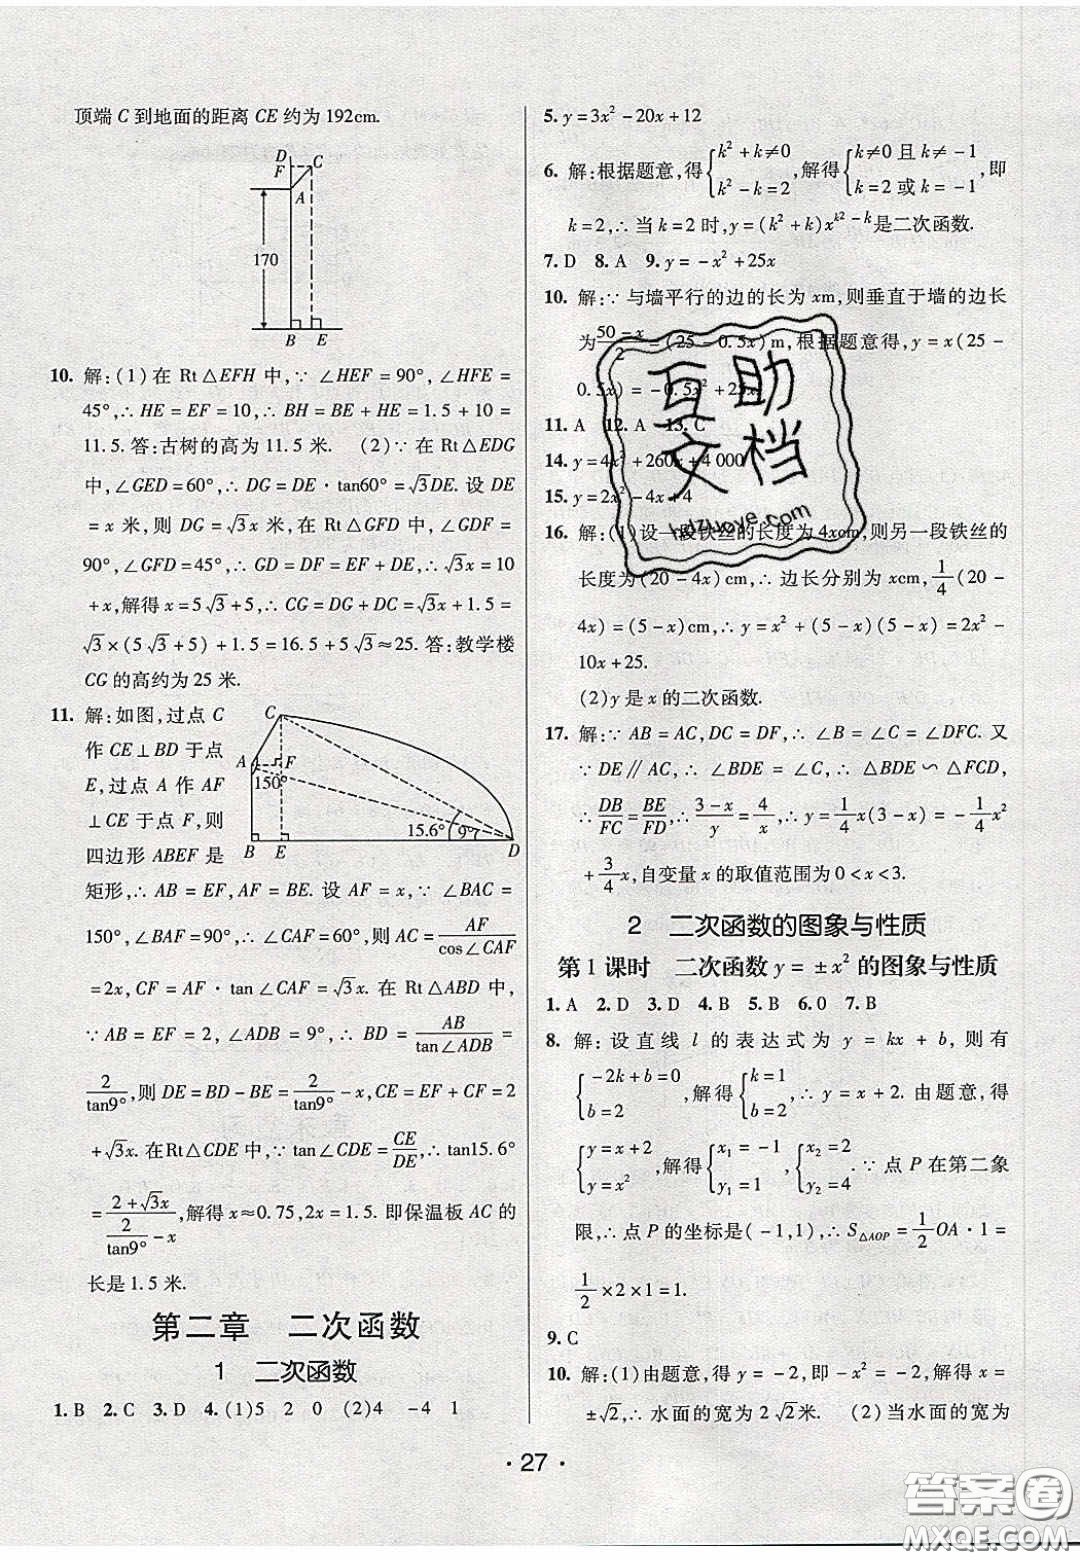 顶端 C 到地面的距离 CE 约为 192cm.
D
F
C
A
170
B E
10. 解:(1)在 Rt△EFH 中,∵∠HEF=90°,∠HFE=
45°,∴HE=EF=10,∴BH=BE+HE=1.5+10=
11.5.答:古树的高为 11.5 米. (2)∵在 Rt△EDG
中,∠GED=60°,∴DG=DE·tan60°=√3DE.设 DE
=x 米,则 DG=√3x 米,在 Rt△GFD 中,∠GDF=
90°,∠GFD=45°,∴GD=DF=EF+DE,∴√3x=10
+x,解得 x=5√3+5,∴CG=DG+DC=√3x+1.5=
√3×(5√3+5)+1.5=16.5+5√3≈25.答:教学楼
CG 的高约为 25 米.
11. 解:如图,过点 C
作 CE⊥BD 于点
E,过点 A 作 AF
⊥CE 于点 F,则
四边形 ABEF 是
C
A F
150°
15.6° 9°
B E D
矩形,∴AB=EF,AF=BE.设 AF=x,∵∠BAC=
150°,∠BAF=90°,∴∠CAF=60°,则 AC=AF/cos∠CAF
=2x,CF=AF·tan∠CAF=√3x.在 Rt△ABD 中,
∵AB=EF=2,∠ADB=9°,∴BD=AB/tan∠ADB=
2/tan9°,则 DE=BD-BE=2/tan9°-x,CE=EF+CF=2
+√3x.在Rt△CDE 中,∵tan∠CDE=CE/DE,∴tan15.6°
=(2+√3x)/(2/tan9°-x),解得 x≈0.75,2x=1.5.即保温板 AC 的
长是 1.5 米.
第二章 二次函数
1 二次函数
1.B 2.C 3.D 4.(1)5 2 0 (2)4 -4 1
5. y=3x²-20x+12
6. 解:根据题意,得{k²+k≠0 k²-k=2,解得{k≠0 且 k≠-1 k=2 或 k=-1,即
k=2,∴当 k=2 时,y=(k²+k)x^(k²-k)是二次函数.
7.D 8.A 9. y=-x²+25x
10. 解:∵与墙平行的边的长为 xm,则垂直于墙的边长
为(50-x)/2=(25-0.5x)m,根据题意得,y=x(25-
0.5x)=-0.5x²+25x.
11.A 12.A 13.C
14. y=4x²+260x+4 000
15. y=2x²-4x+4
16. 解:(1)设一段铁丝的长度为 4xcm,则另一段铁丝的
长度为(20-4x)cm,∴边长分别为 xcm,1/4(20-
4x)=(5-x)cm,∴y=x²+(5-x)(5-x)=2x²-
10x+25.
(2)y 是 x 的二次函数.
17. 解:∵AB=AC,DC=DF,∴∠B=∠C=∠DFC.又
∵DE∥AC,∴∠BDE=∠C,∴△BDE∽△FCD,
∴DB/FC=BE/FD,∴(3-x)/y=4/x,∴y=1/4x(3-x)=-1/4x²
+3/4x,自变量 x 的取值范围为 0<x<3.
2 二次函数的图象与性质
第 1 课时 二次函数 y=±x² 的图象与性质
1.A 2.D 3.D 4.B 5.B 6.0 7.B
8. 解:设直线 l 的表达式为 y=kx+b,则有
{-2k+b=0 b=2,解得{k=1 b=2,∴y=x+2.由题意,得
{y=x+2 y=x²,解得{x₁=-1 y₁=1,{x₂=2 y₂=4.∵点 P 在第二象
限,∴点 P 的坐标是(-1,1),∴S△AOP=1/2OA·1=
1/2×2×1=1.
9.C
10. 解:(1)由题意,得 y=-2,即-x²=-2,解得 x=
±√2,∴水面的宽为 2√2米. (2)当水面的宽为
互助
文档
hdzuoye.com
· 27 ·
答案圈
MXQE.COM